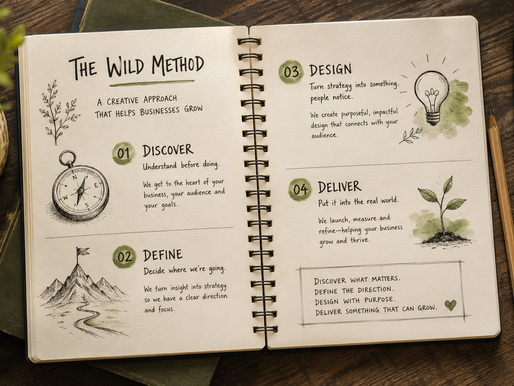 THE WILD METHOD
A CREATIVE APPROACH
THAT HELPS BUSINESSES GROW
01 DISCOVER
Understand before doing.
We get to the heart of your
business, your audience and
your goals.
02 DEFINE
Decide where we're going.
We turn insight into strategy
so we have a clear direction
and focus.
03 DESIGN
Turn strategy into something
people notice.
We create purposeful, impactful
design that connects with your
audience.
04 DELIVER
Put it into the real world.
We launch, measure and
refine—helping your business
grow and thrive.
DISCOVER WHAT MATTERS.
DEFINE THE DIRECTION.
DESIGN WITH PURPOSE.
DELIVER SOMETHING THAT CAN GROW.